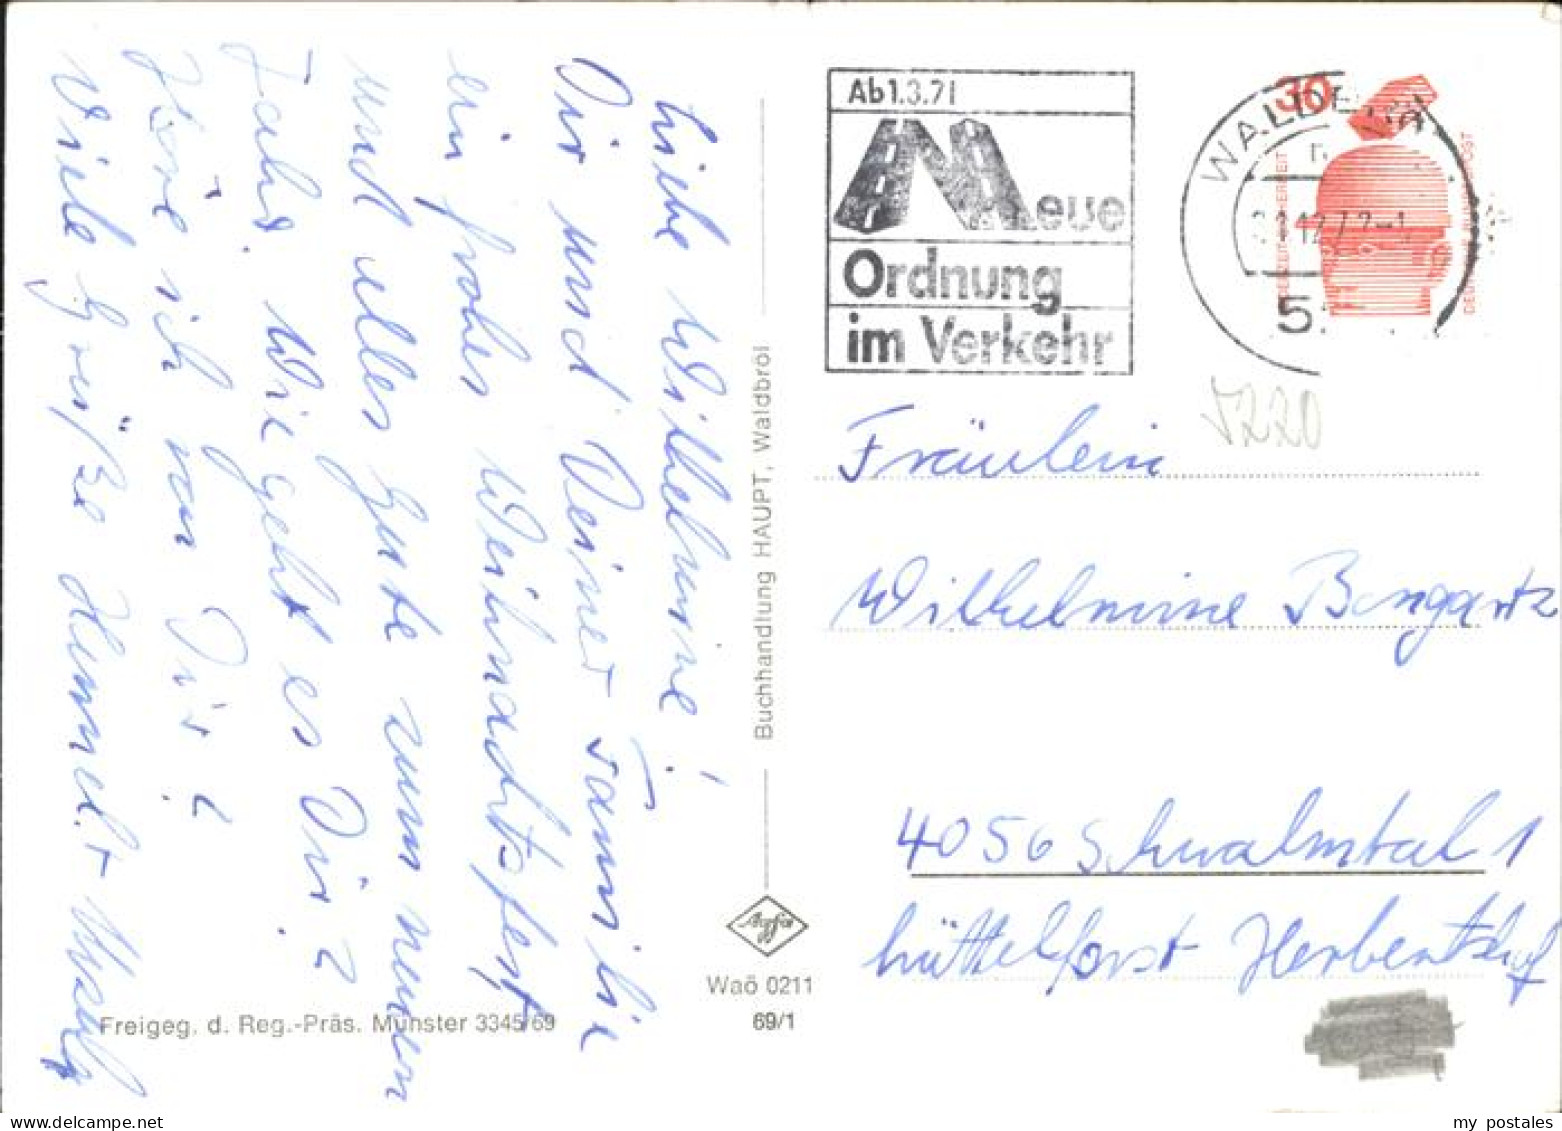 Liebe Wilhelmine!
Dir und Deiner Familie
ein frohes Weihnachtsfest
und alles Gute zum neuen
Jahr. Wie geht es Dir?
Höre ich von Dir?
Viele Grüße Helmut
Freigeg. d. Reg.-Präs. Münster 3345/69
Buchhandlung HAUPT, Waldbröl
Agfa
Waö 0211
69/1
Ab 1.3.71
Neue
Ordnung
im Verkehr
WALDBRÖL
30
JEDERZEIT SICHERHEIT
DEUTSCHE BUNDESPOST
5220
Fräulein
Wilhelmine Bongartz
4056 Schwalmtal 1
Hüttelforst
my postales